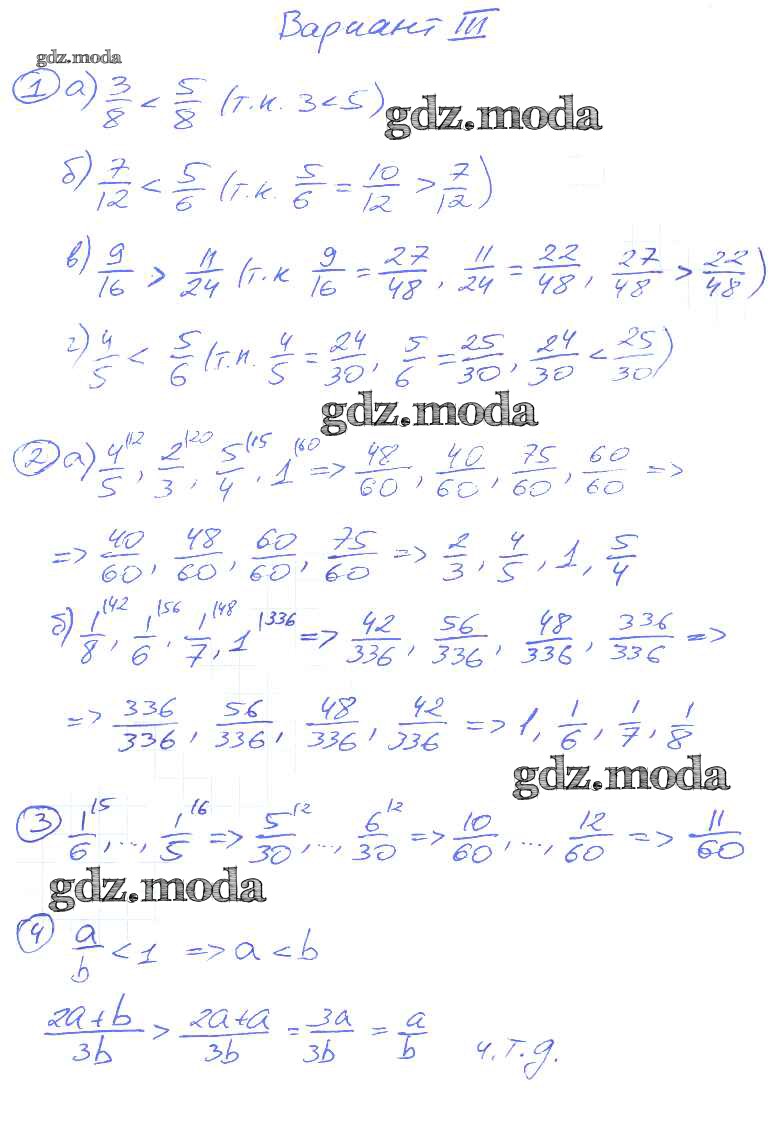 Вариант III
gdz.moda
1 а) 3/8 < 5/8 (т.к. 3<5)
gdz.moda
б) 7/12 < 5/6 (т.к. 5/6 = 10/12 > 7/12)
в) 9/16 > 11/24 (т.к 9/16 = 27/48, 11/24 = 22/48, 27/48 > 22/48)
г) 4/5 < 5/6 (т.к. 4/5 = 24/30, 5/6 = 25/30, 24/30 < 25/30)
gdz.moda
2 а) 4/5 |12, 2/3 |20, 5/4 |15, 1 |60 => 48/60, 40/60, 75/60, 60/60 =>
=> 40/60, 48/60, 60/60, 75/60 => 2/3, 4/5, 1, 5/4
б) 1/8 |42, 1/6 |56, 1/7 |48, 1 |336 => 42/336, 56/336, 48/336, 336/336 =>
=> 336/336, 56/336, 48/336, 42/336 => 1, 1/6, 1/7, 1/8
gdz.moda
3 1/6 |5, ..., 1/5 |6 => 5/30 |2, ..., 6/30 |2 => 10/60, ..., 12/60 => 11/60
gdz.moda
4 a/b < 1 => a < b
2a+b/3b > 2a+a/3b = 3a/3b = a/b ч.т.д.